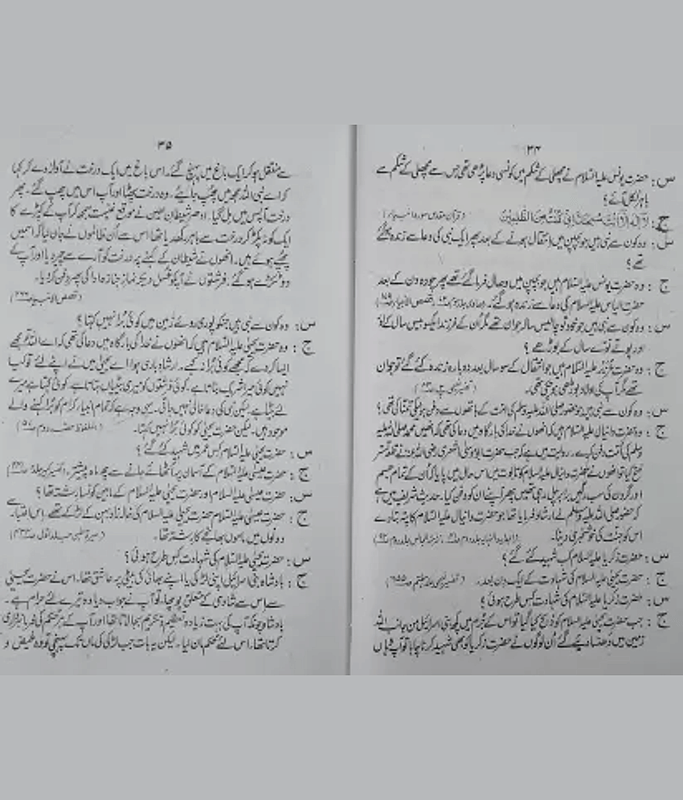 ۳۴
س : حضرت یونس علیہ السلام نے مچھلی کے شکم میں کونسی دعا پڑھی تھی جس سے مچھلی کے شکم سے
باہر نکل آئے ؟
ج : لا الہ الا انت سبحانک انی کنت من الظلمین (قرآن مقدس سورہ انبیاء)
س : وہ کون سے نبی ہیں جو بچپن میں انتقال ہونے کے بعد پھر ایک نبی کی دعا سے زندہ ہوگئے
تھے ؟
ج : وہ حضرت یونس علیہ السلام ہیں جو بچپن میں وصال فرما گئے تھے پھر چودہ دن کے بعد
حضرت الیاس علیہ السلام کی دعا سے زندہ ہو گئے۔
س : وہ کون سے نبی ہیں جو خود تو چالیس سالہ جوان تھے مگر ان کے فرزند ایکسو بیس سال کے
اور پوتے نوے سال کے بوڑھے ؟
ج : وہ حضرت عزیر علیہ السلام ہیں جو انتقال کے سو سال بعد دوبارہ زندہ کئے گئے تو جوان
تھے مگر آپ کی اولاد بوڑھی ہو چکی تھی۔
س : وہ کون سے نبی ہیں جو حضور صلی اللہ علیہ وسلم کی امت کے ہاتھوں سے دفن ہونیکی تمنا کی تھی ؟
ج : وہ حضرت دانیال علیہ السلام ہیں کہ انھوں نے خدا کی بارگاہ میں دعا کی تھی کہ انھیں محمد صلی اللہ علیہ
وسلم کی امت دفن کرے۔ روایت میں ہے کہ جب حضرت ابو موسی اشعری رضی اللہ عنہ نے قلعہ تستر
فتح کیا تو انھوں نے حضرت دانیال علیہ السلام کو تابوت میں اس حال میں پایا کہ ان کے تمام جسم
اور گردن کی سب رگیں برابر چل رہی تھیں پھر آپ نے ان کو دفن کیا۔ حدیث شریف میں ہے
کہ حضور صلی اللہ علیہ وسلم نے ارشاد فرمایا تھا جو حضرت دانیال علیہ السلام کا پتہ بتا دے
اس کو جنت کی خوشخبری دینا۔
س : حضرت زکریا علیہ السلام کب شہید کئے گئے ؟
ج : حضرت یحییٰ علیہ السلام کی شہادت کے ایک دن بعد۔
س : حضرت زکریا علیہ السلام کی شہادت کس طرح ہوئی ؟
ج : جب حضرت یحییٰ علیہ السلام کو ذبح کیا گیا تو اس کے جرم میں کچھ بنی اسرائیل من جانب اللہ
زمین میں دھنسا دیئے گئے ان لوگوں نے حضرت زکریا کو بھی شہید کرنا چاہا تو آپ وہاں
۳۵
سے منتقل ہو کر ایک باغ میں پہنچ گئے۔ اس باغ میں ایک درخت نے آواز دے کر کہا
کہ اے نبی اللہ مجھ میں چھپ جائیے۔ وہ درخت پھٹا اور آپ اس میں چھپ گئے۔ پھر
درخت آپس میں مل گیا۔ ادھر شیطان لعین نے موقع غنیمت سمجھ کر آپ کے کپڑے کا
ایک کونہ پکڑ کر درخت سے باہر رکھ دیا تھا اس سے ان ظالموں نے جان لیا کہ اسمیں
چھپے ہوئے ہیں۔ انھوں نے شیطان کے کہنے پر درخت کو آرے سے چیر دیا اور آپ کے
دو ٹکڑے ہو گئے۔ فرشتوں نے آپکو غسل دیکر نماز جنازہ ادا کی پھر دفن کر دیا۔
(قصص الانبیاء)
س : وہ کون سے نبی ہیں جنکو پوری روئے زمین میں کوئی برا نہیں کہتا ؟
ج : وہ حضرت یحییٰ علیہ السلام ہیں کہ انھوں نے خدا کی بارگاہ میں دعا کی تھی کہ اے اللہ تو مجھے
ایسا کردے کہ مجھے کوئی برا نہ کہے۔ ارشاد باری ہوا اے یحییٰ میں نے اپنے لئے تو کیا
نہیں کوئی میرا شریک بناتا ہے کوئی فرشتوں کو میری بیٹیاں بتاتا ہے، کوئی کہتا ہے میرے
لئے بیٹا ہے لیکن نبی کی دعا خالی نہیں جاتی۔ یہی وجہ ہے کہ تمام انبیاء کرام کو برا کہنے والے
موجود ہیں۔ لیکن حضرت یحییٰ کو کوئی برا نہیں کہتا۔ (الملفوظ حصہ دوم)
س : حضرت یحییٰ علیہ السلام کس عمر میں شہید کئے گئے ؟
ج : حضرت عیسیٰ علیہ السلام کے آسمان پر اٹھائے جانے سے چھ ماہ پیشتر۔
س : حضرت عیسیٰ علیہ السلام اور حضرت یحییٰ علیہ السلام کے مابین کونسا رشتہ تھا ؟
ج : حضرت عیسیٰ علیہ السلام حضرت یحییٰ علیہ السلام کی خالہ زاد بہن کے لڑکے تھے۔ اس اعتبار سے
دونوں میں ماموں بھانجے کا رشتہ تھا۔ (سیرۃ حلبی جلد اول)
س : حضرت یحییٰ علیہ السلام کی شہادت کس طرح ہوئی ؟
ج : بادشاہ بنی اسرائیل اپنی لڑکی یا اپنے بھائی کی بیٹی پر عاشق تھا۔ اس نے حضرت یحییٰ
سے اس سے شادی کے متعلق پوچھا، تو آپ نے جواب دیا وہ تیرے لئے حرام ہے۔
بادشاہ چونکہ آپ کی بہت زیادہ تعظیم و تکریم بجالاتا تھا اور آپ کے ہر حکم کی فرمانبرداری
کرتا تھا۔ اس لئے حکم مان لیا۔ لیکن یہ بات جب لڑکی کی ماں تک پہنچی تو وہ غیض و